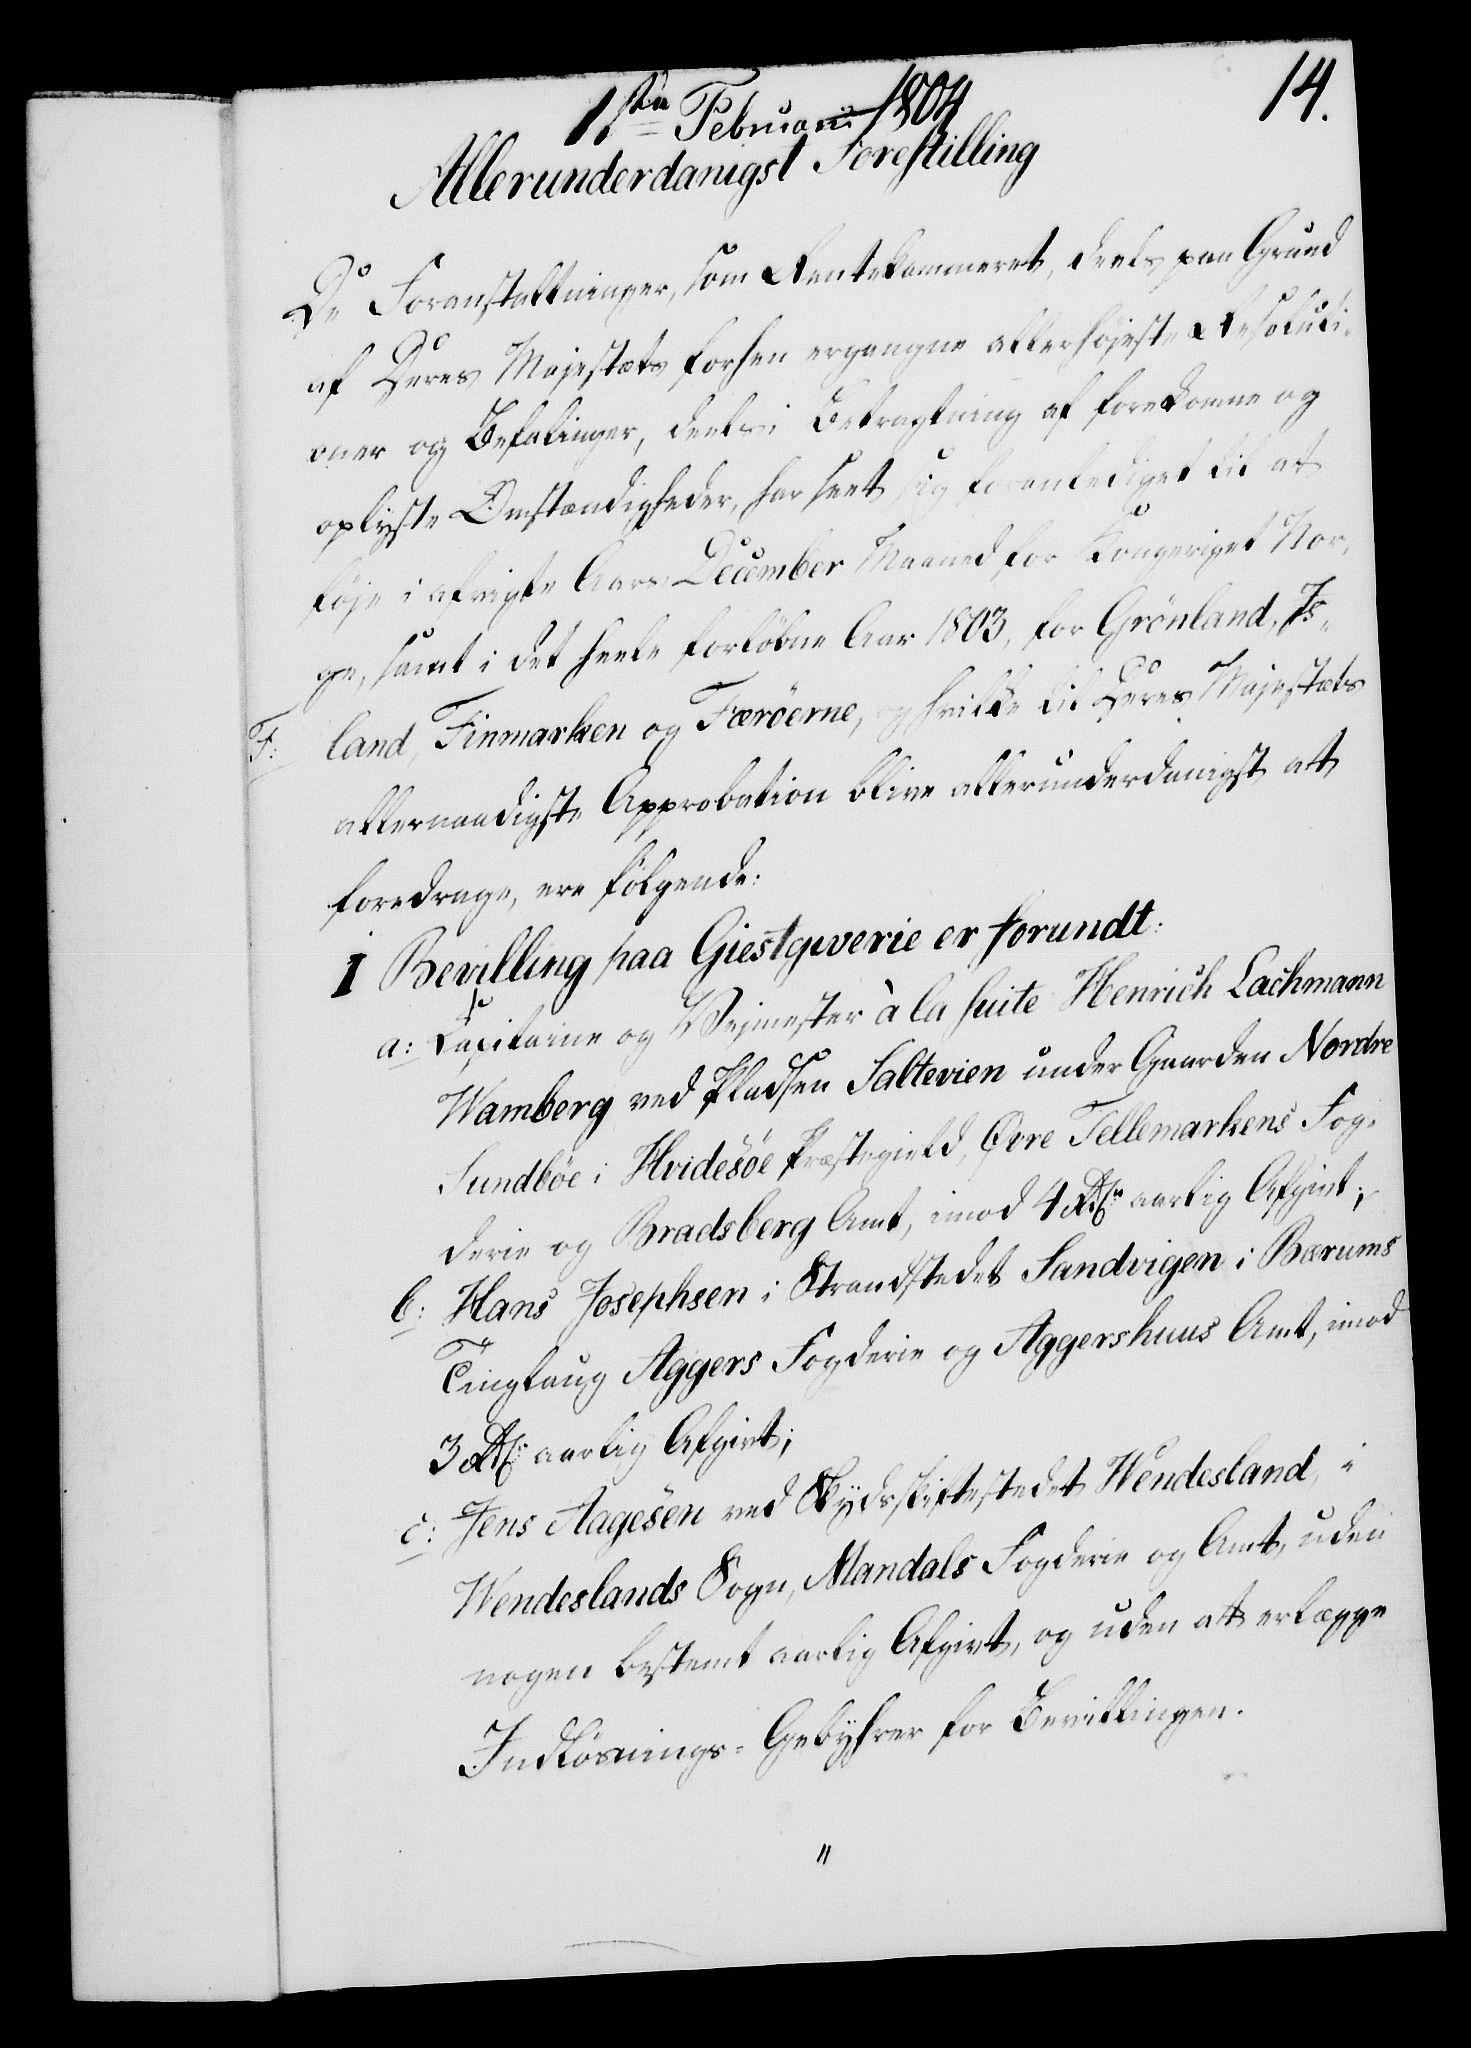 14.
1ste Februarii 1804
Allerunderdanigst Forestilling
De Foranstaltninger, som Rentekammeret, deels paa Grund
af Deres Majestæts forhen ergangne allerhøjeste Resoluti-
oner og Befalinger, deels i Betragtning af forekomne og
oplyste Omstændigheder, har seet sig foranlediget til at
føje i afvigte Aars December Maaned for Kongeriget Nor-
ge, samt i det heele forløbne Aar 1803, for Grönland, Is-
F: land, Finmarken og Færöerne, og hvilke til Deres Majestæts
allernaadigste Approbation blive allerunderdanigst att
foredrage, ere følgende:
I Bevilling paa Giestgiverie er forundt:
a: Kapitaine og Vejmester à la suite Henrich Lachmann
Wamberg ved Pladsen Saltevien under Gaarden Nordre
Sundböe i Hvidesöe Præstegield, Øvre Tellemarkens Fog-
derie og Bradsberg Amt, imod 4 Rdlr aarlig Afgivt;
b: Hans Josephsen i Strandstedet Sandvigen i Bærums
Tinglaug Aggers Fogderie og Aggershuus Amt, imod
3 Rdlr aarlig Afgivt;
c: Jens Aagesen ved Skydsskiftestedet Wendesland, i
Wendeslands Sogn, Mandals Fogderie og Amt, uden
nogen bestemt aarlig Afgivt, og uden att erlægge
Indløsnings-Gebyhrer for Bevillingen.
"